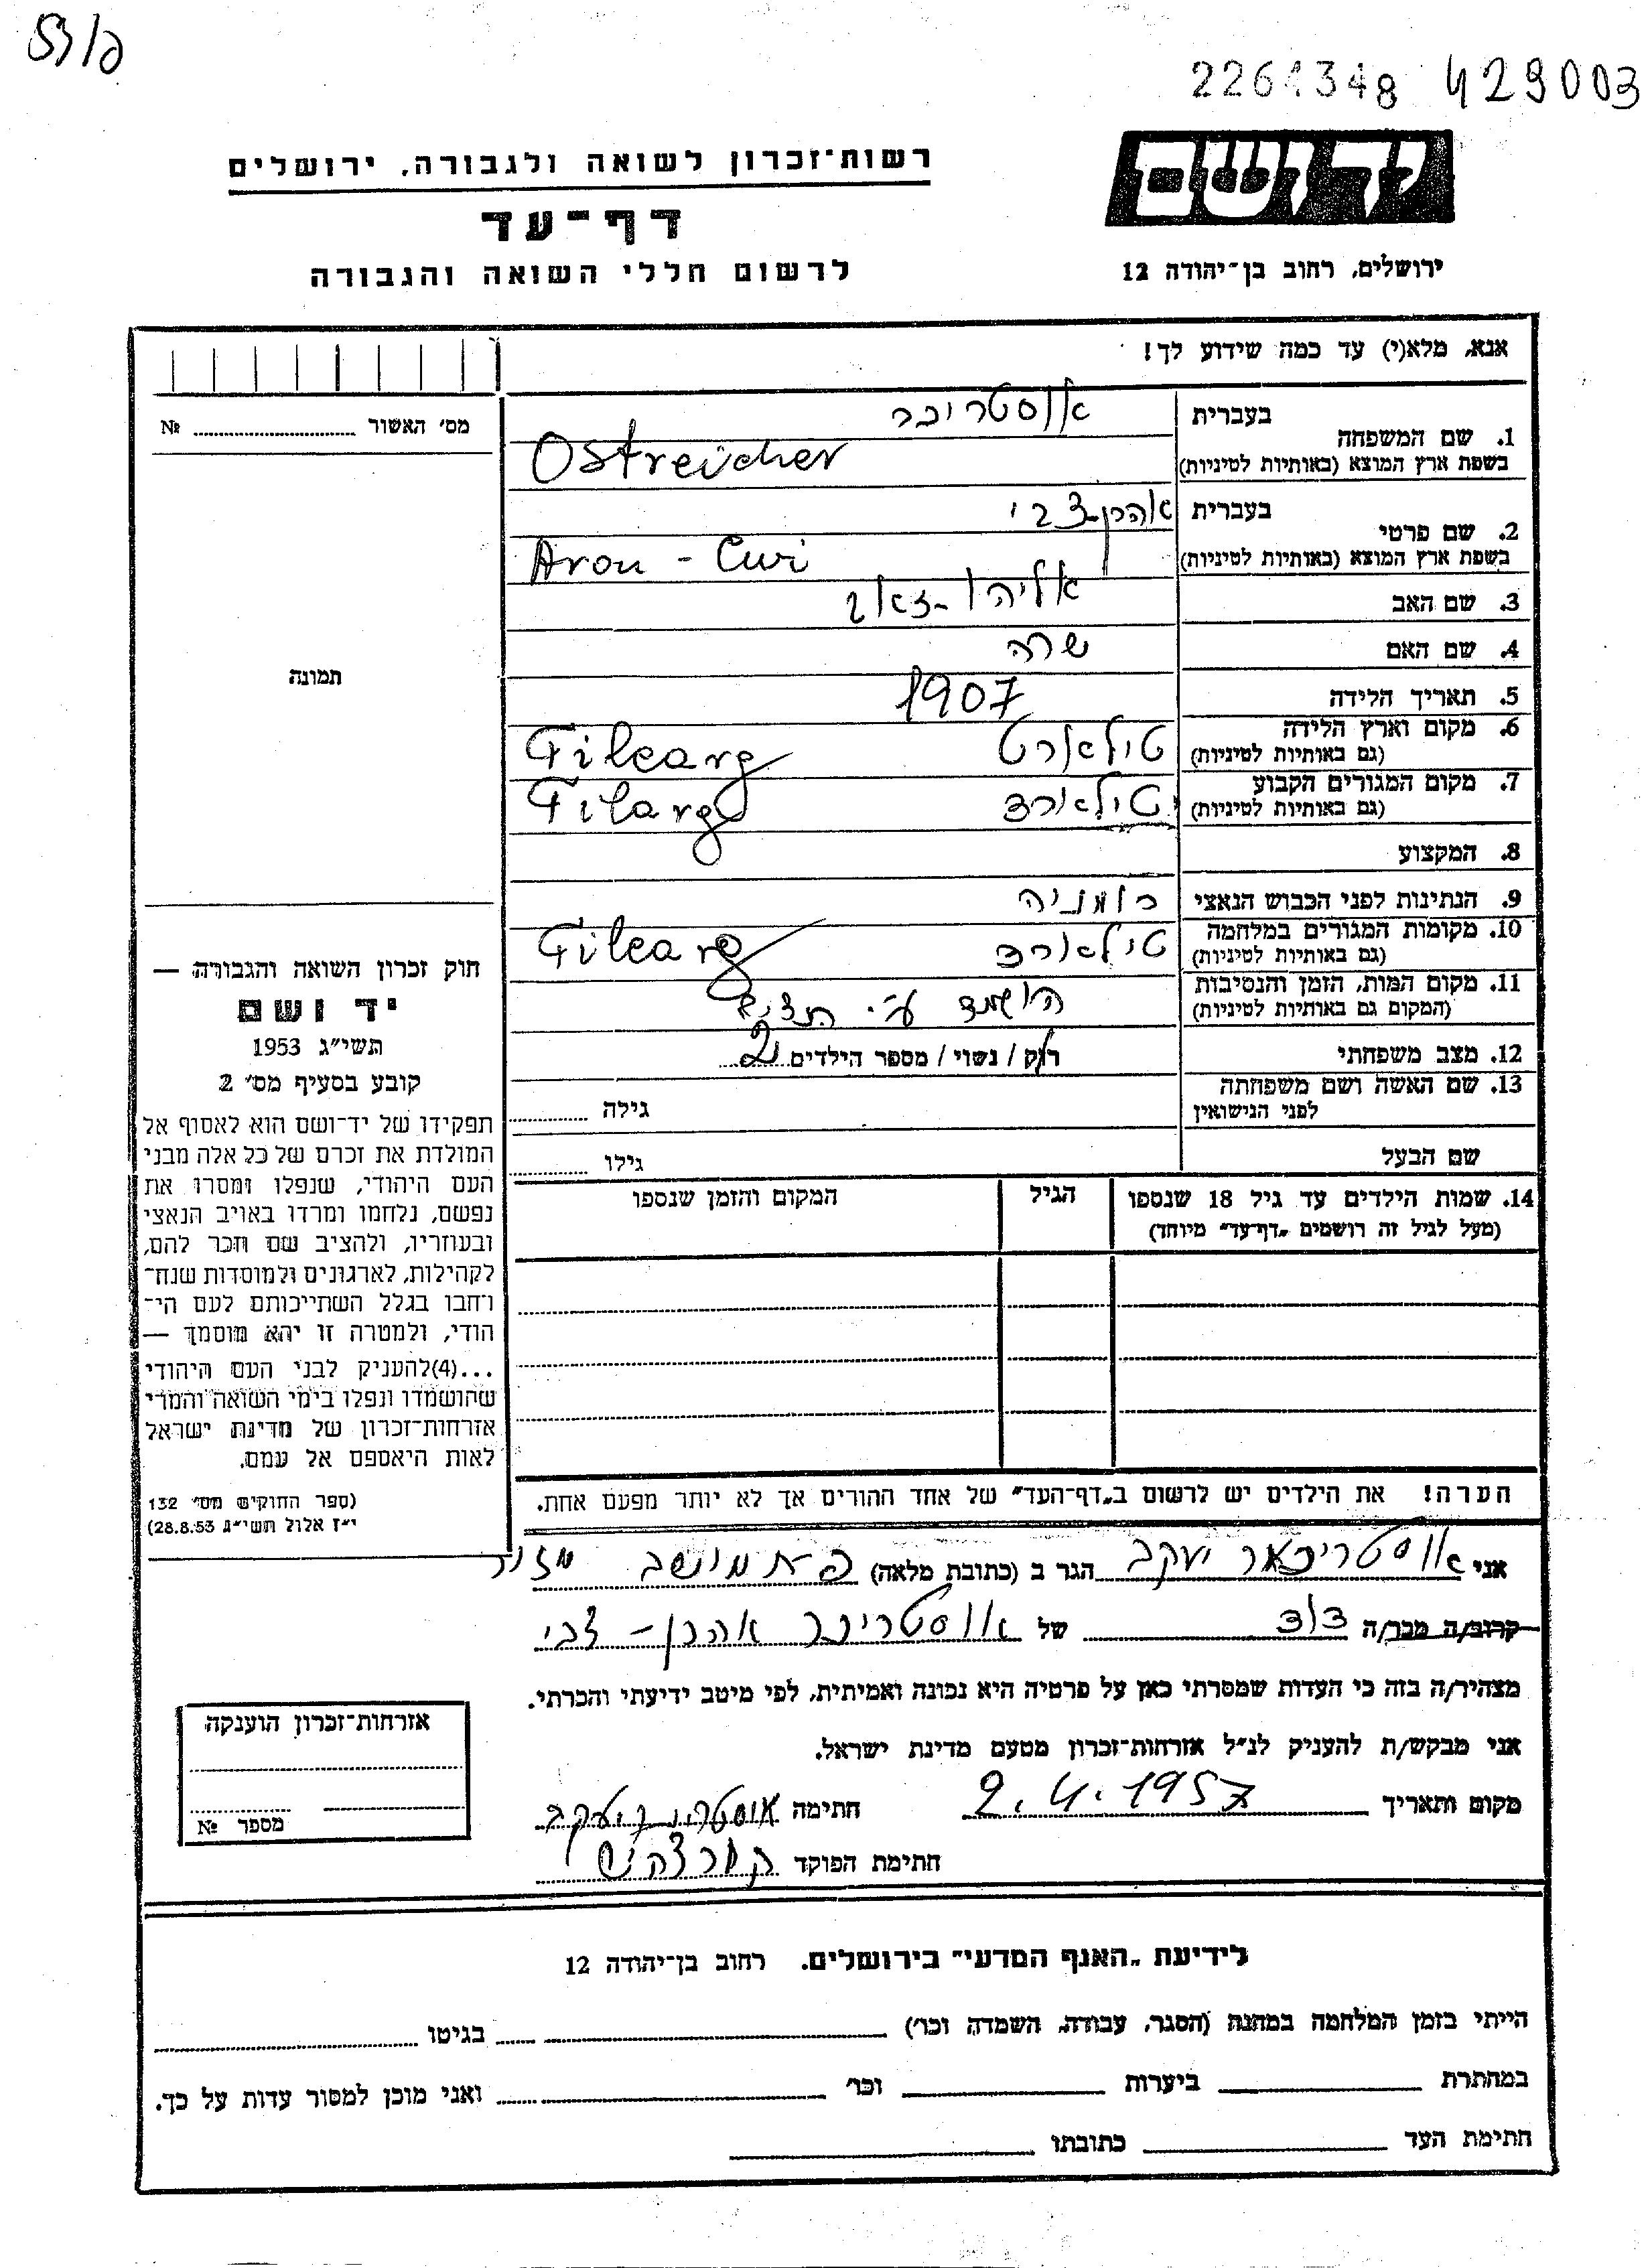 2261348 429003
יד ושם
רשות־זכרון לשואה ולגבורה, ירושלים
דף־עד
לרשום חללי השואה והגבורה
ירושלים, רחוב בן־יהודה 12
אנא, מלא(י) עד כמה שידוע לך!
מס׳ האשור № 
תמונה
1. שם המשפחה
בעברית אוסטריכר
בשפת ארץ המוצא (באותיות לטיניות) Ostreicher
2. שם פרטי
בעברית אהרן־צבי
בשפת ארץ המוצא (באותיות לטיניות) Aron - Cwi
3. שם האב אליהו־זאב
4. שם האם שרה
5. תאריך הלידה 1907
6. מקום וארץ הלידה טילאורט
(גם באותיות לטיניות) Tilearg
7. מקום המגורים הקבוע טילאורד
(גם באותיות לטיניות) Tilarg
8. המקצוע
9. הנתינות לפני הכבוש הנאצי רומניה
10. מקומות המגורים במלחמה טילאורד
(גם באותיות לטיניות) Tilearg
11. מקום המות, הזמן והנסיבות הושמד ע״י
(המקום גם באותיות לטיניות)
12. מצב משפחתי רוק / נשוי / מספר הילדים
13. שם האשה ושם משפחתה
לפני הנישואין גילה
שם הבעל גילו
14. שמות הילדים עד גיל 18 שנספו הגיל המקום והזמן שנספו
(מעל לגיל זה רושמים „דף־עד״ מיוחד)
הערה! את הילדים יש לרשום ב„דף־העד״ של אחד ההורים אך לא יותר מפעם אחת.
חוק זכרון השואה והגבורה —
יד ושם
תשי״ג 1953
קובע בסעיף מס׳ 2
תפקידו של יד־ושם הוא לאסוף אל
המולדת את זכרם של כל אלה מבני
העם היהודי, שנפלו ומסרו את
נפשם, נלחמו ומרדו באויב הנאצי
ובעוזריו, ולהציב שם וזכר להם,
לקהילות, לארגונים ולמוסדות שנח־
רחבו בגלל השתייכותם לעם הי־
הודי, ולמטרה זו יהא מוסמך —
...(4)להעניק לבני העם היהודי
שהושמדו ונפלו בימי השואה והמרי
אזרחות־זכרון של מדינת ישראל
לאות היאספם אל עמם.
(ספר החוקים מס׳ 132
י״ז אלול תשי״ג 28.8.53)
אני אוסטריכר יעקב הגר ב (כתובת מלאה) מושב מזור
קרוב/ה מכר/ה דוד של אוסטריכר אהרן - צבי
מצהיר/ה בזה כי העדות שמסרתי כאן על פרטיה היא נכונה ואמיתית, לפי מיטב ידיעתי והכרתי.
אני מבקש/ת להעניק לנ״ל אזרחות־זכרון מטעם מדינת ישראל.
מקום ותאריך 2.4.1957 חתימה
חתימת הפוקד
אזרחות־זכרון הוענקה
מספר №
לידיעת „האגף המדעי״ בירושלים. רחוב בן־יהודה 12
הייתי בזמן המלחמה במחנה (הסגר, עבודה, השמדה וכו׳) בגיטו
במחתרת ביערות וכו׳ ואני מוכן למסור עדות על כך.
חתימת העד כתובתו